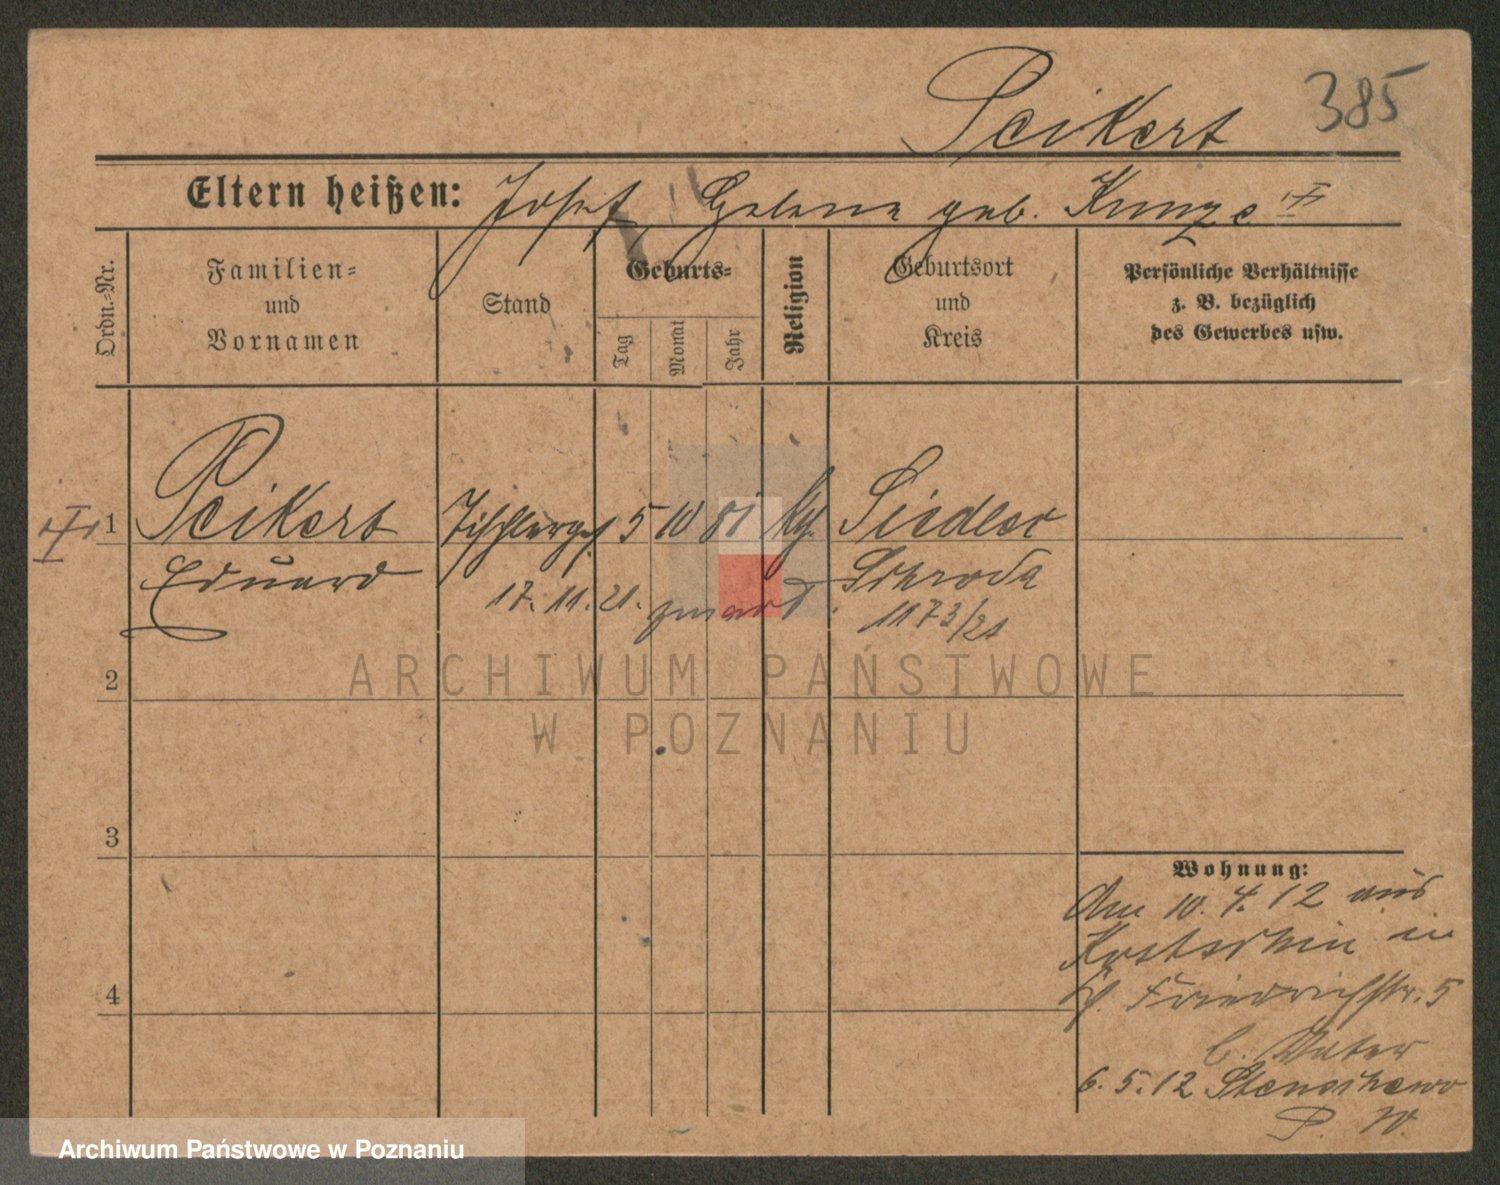 385
Peikert
Eltern heißen: Josef, Helene geb. Kunze
Ordn.-Nr.
Familien=
und
Vornamen
Stand
Geburts=
Tag
Monat
Jahr
Religion
Geburtsort
und
Kreis
Persönliche Verhältnisse
z. B. bezüglich
des Gewerbes usw.
1 Peikert Tischlerges 5 10 81 kth. Siedlec
Eduard Schroda
17. 11. 21. zmarł. 1173/21
2
3
4
Wohnung:
Am 10. 4. 12 aus
Kostschin in
Friedrichstr. 5
b. Vater
6. 5. 12 Stenschewo
P. W.
ARCHIWUM PAŃSTWOWE
W POZNANIU
Archiwum Państwowe w Poznaniu